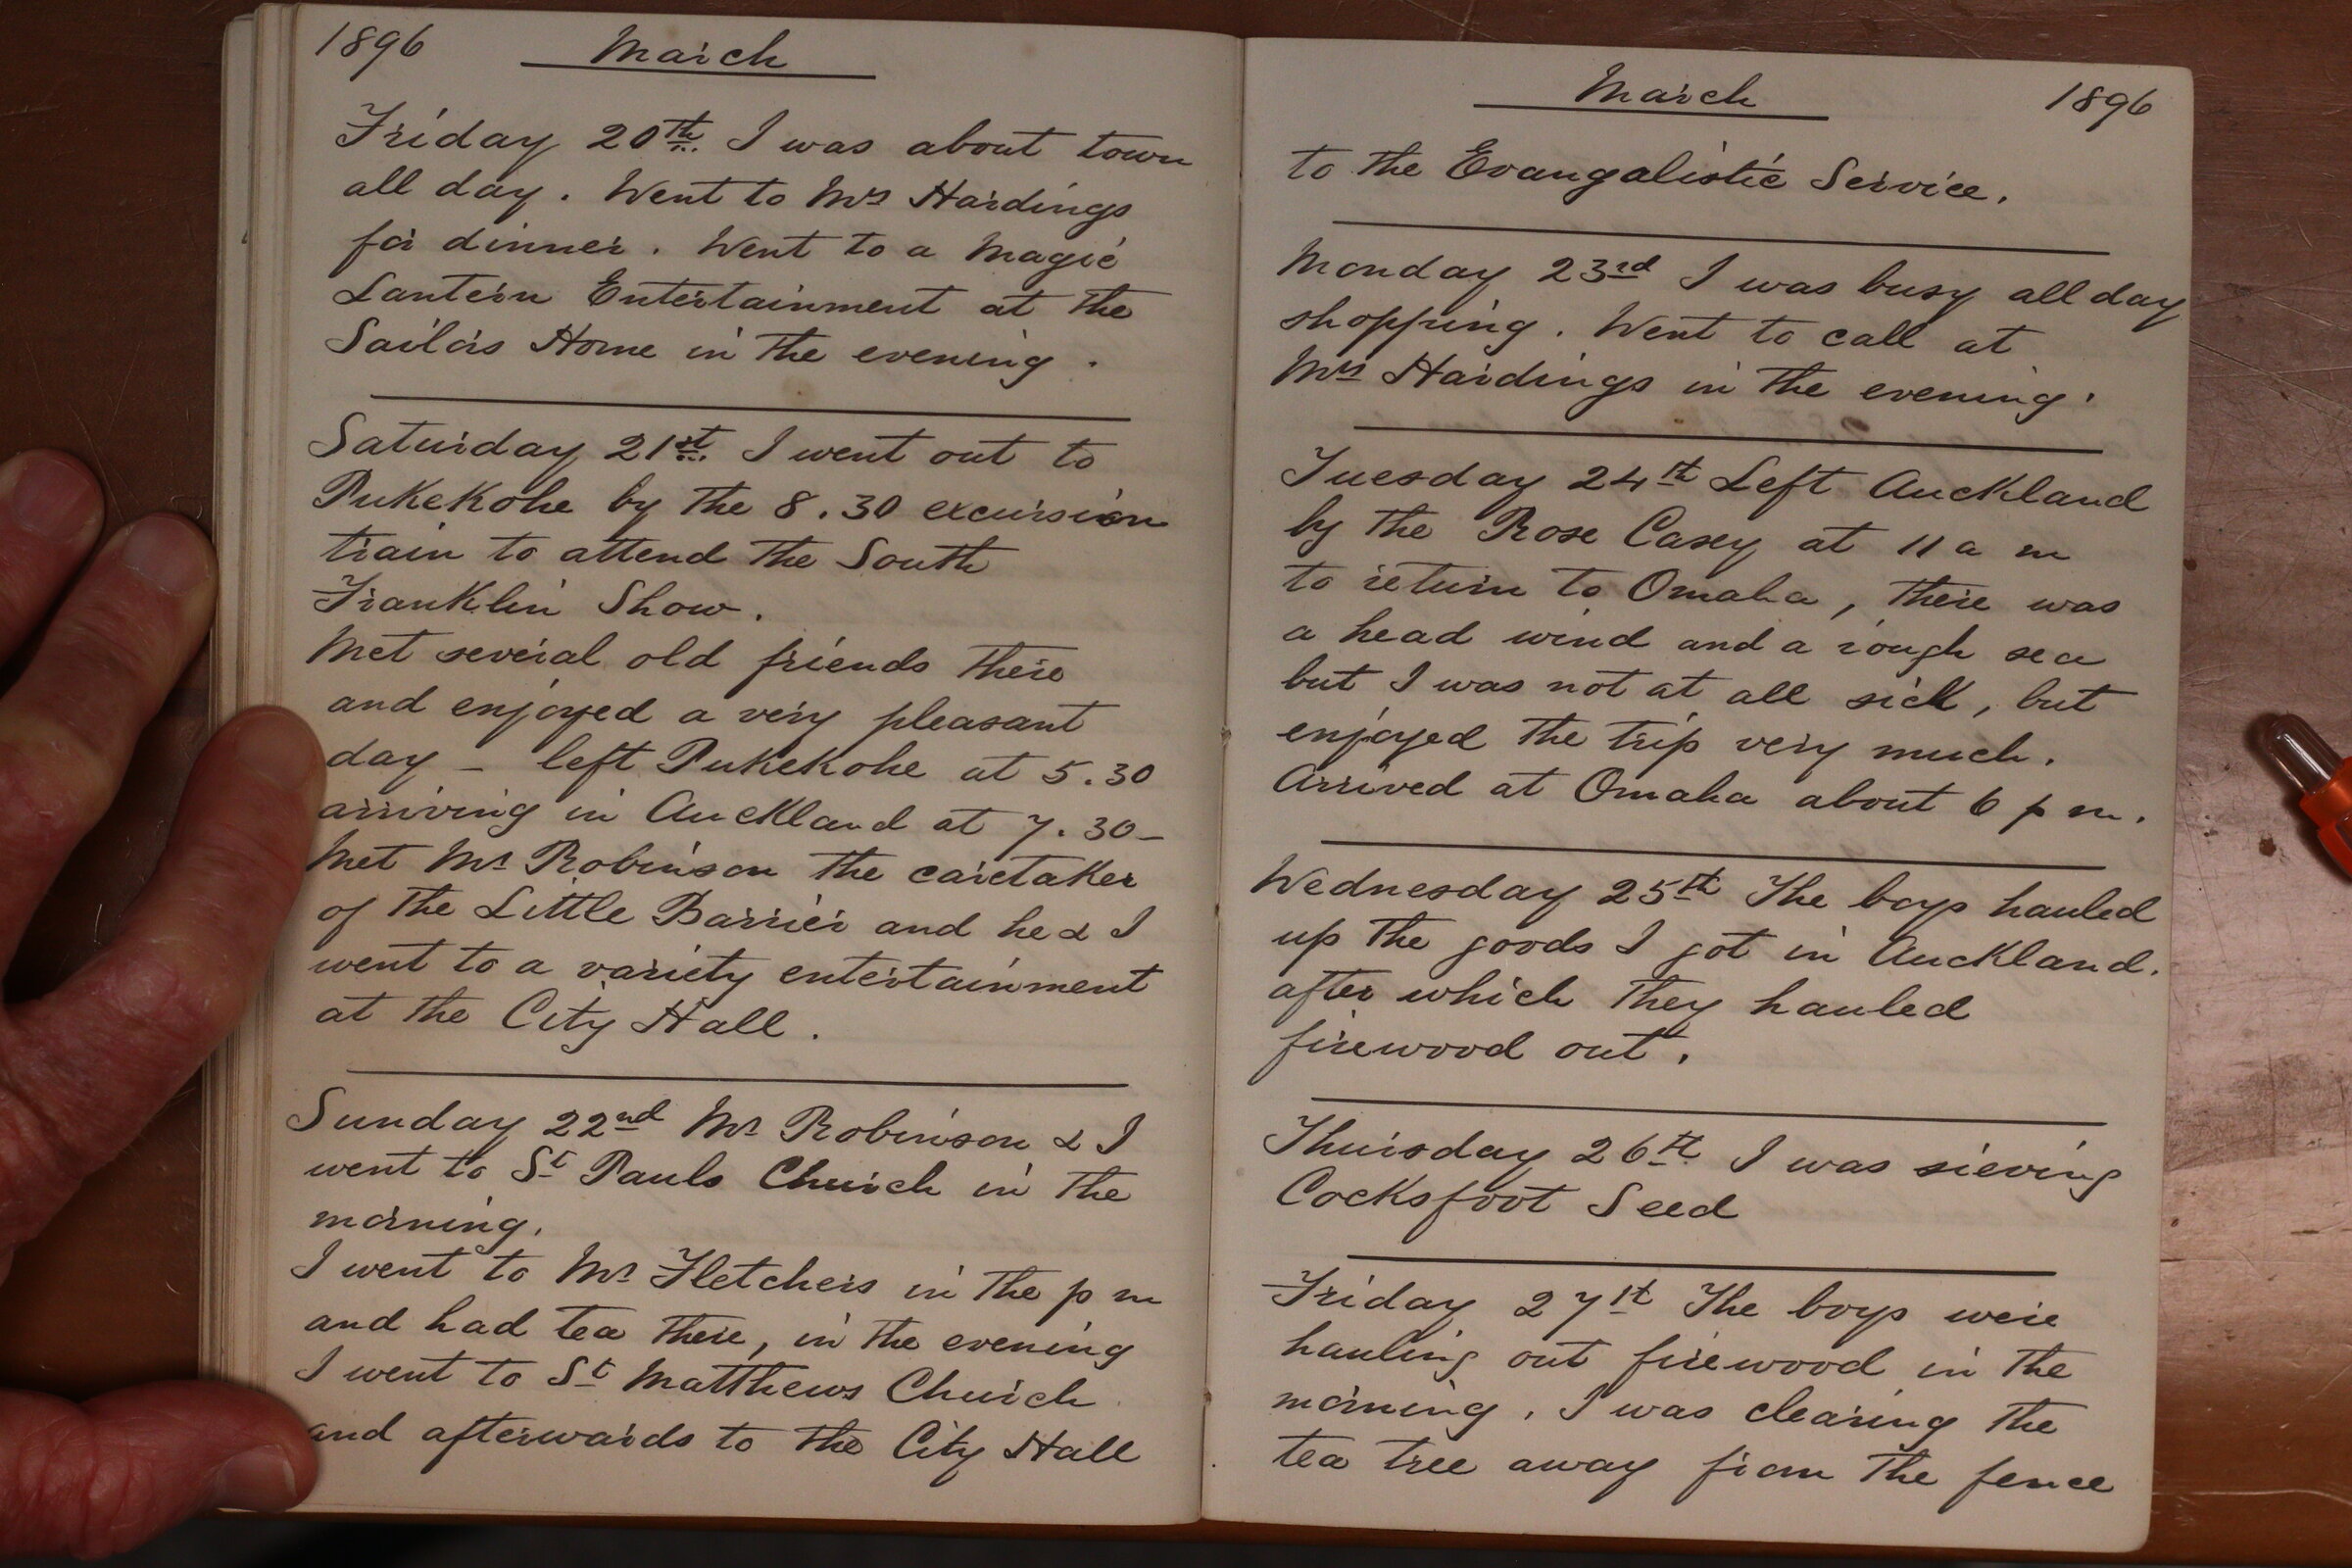 1896 March
Friday 20th I was about town
all day. Went to Mrs Hardings
for dinner. Went to a Magic
Lantern Entertainment at the
Sailors Home in the evening.
Saturday 21st I went out to
PukeKohe by the 8.30 excursion
train to attend the South
Franklin Show.
Met several old friends there
and enjoyed a very pleasant
day - left Pukekohe at 5.30
arriving in Auckland at 7.30-
Met Mr Robinson the caretaker
of the Little Barrier and he & I
went to a variety entertainment
at the City Hall.
Sunday 22nd Mr Robinson & I
went to St Pauls Church in the
morning.
I went to Mr Fletchers in the p m
and had tea there, in the evening
I went to St Matthews Church
and afterwards to the City Hall
March 1896
to the Evangalistic Service.
Monday 23rd I was busy all day
shopping. Went to call at
Mrs Hardings in the evening.
Tuesday 24th Left Auckland
by the Rose Casey at 11 a m
to return to Omaha, there was
a head wind and a rough sea
but I was not at all sick, but
enjoyed the trip very much.
Arrived at Omaha about 6 p m.
Wednesday 25th The boys hauled
up the goods I got in Auckland.
after which they hauled
firewood out.
Thursday 26th I was sieving
Cocksfoot Seed
Friday 27th The boys were
hauling out firewood in the
morning. I was clearing the
tea tree away from the fence